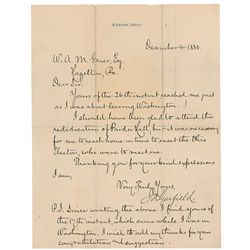 MENTOR, OHIO.
December 4 1880
W. A. M. Grier, Esq.
Hazelton, Pa.
Dear Sir:
Yours of the 26th instant reached me just
as I was about leaving Washington.
I should have been glad to attend the
rededication of Pardee Hall, but it was necessary
for me to reach home in time to meet the Ohio
Electors, who were to meet me.
Thanking you for your kind expressions
I am,
Very Truly Yours,
J A Garfield
P.S. Since writing the above I find yours of
the 17th instant, which came while I was in
Washington. I wish to add my thanks for your
congratulations and suggestions.